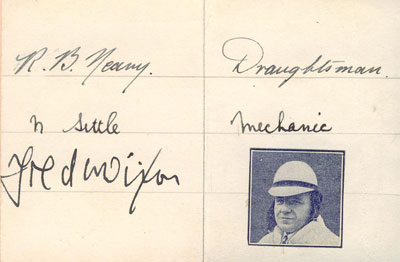 R. B. Draughtsman.
N Settle Mechanic
Fred W Dixon